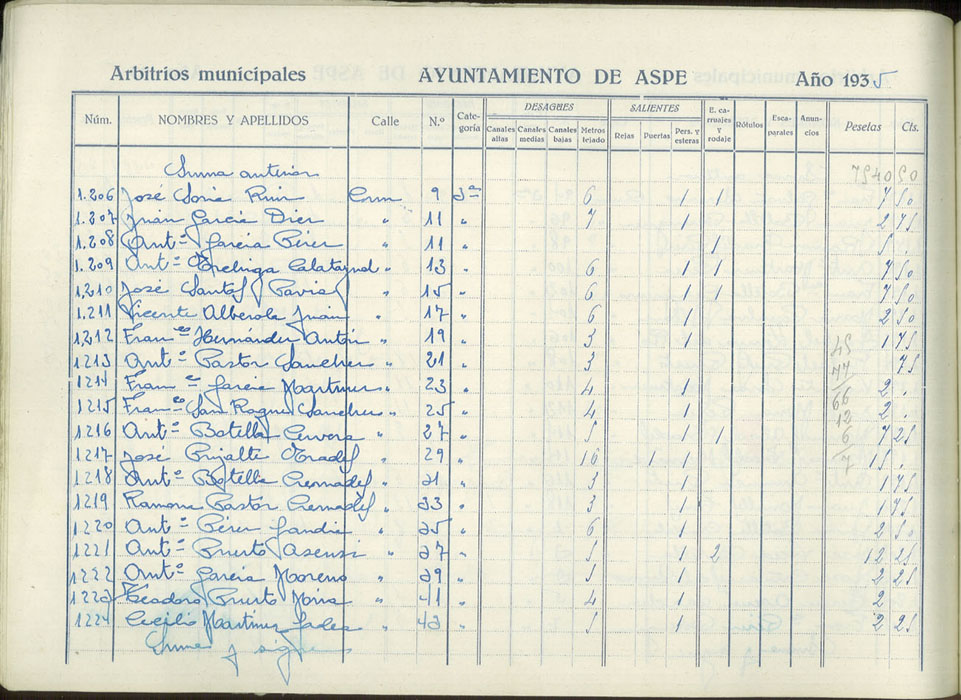 Arbitrios municipales AYUNTAMIENTO DE ASPE Año 1935
Núm. NOMBRES Y APELLIDOS Calle N.º Categoría DESAGÜES SALIENTES E. carruajes y rodaje Rótulos Escaparates Anuncios Pesetas Cts.
Canales altas Canales medias Canales bajas Metros tejado Rejas Puertas Pers. y esteras
Suma anterior 7540 50
1.206 José Soria Ruiz 9 3ª 6 1 1 7 50
1.207 Juan García Díez " 11 " 7 1 2 75
1.208 Antº García Pérez " 11 " 1 5 .
1.209 Antº Calatayud " 13 " 6 1 1 7 50
1.210 José Santos Pavia " 15 " 6 1 1 7 50
1.211 Vicente Alberola Juán " 17 " 6 1 2 50
1.212 Francº Hernández Antón " 19 " 3 1 1 75
1213 Antº Pastor Sánchez " 21 " 3 75
1214 Francº García Martínez " 23 " 4 1 2 .
1215 Francº San Roque Sánchez " 25 " 4 1 2 .
1216 Antº Botella Cervera " 27 " 5 1 1 7 25
1217 José " 29 " 16 1 1 15 .
1218 Antº Botella " 31 " 3 1 1 75
1219 Ramona Pastor " 33 " 3 1 1 75
1220 Antº Pérez " 35 " 6 1 2 50
1221 Antº Puerto Asensi " 37 " 5 1 2 12 25
1222 Antº García Moreno " 39 " 5 1 2 25
1223 Teodoro Puerto " 41 " 4 1 2
1224 Cecilio Martínez " 43 " 5 1 2 25
Suma y sigue
45
77
66
12
6
7